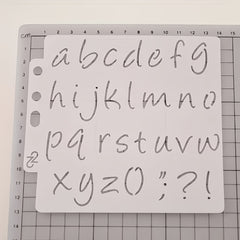 abcdefg
hijklmno
pqrstuvw
xyz() ";?!